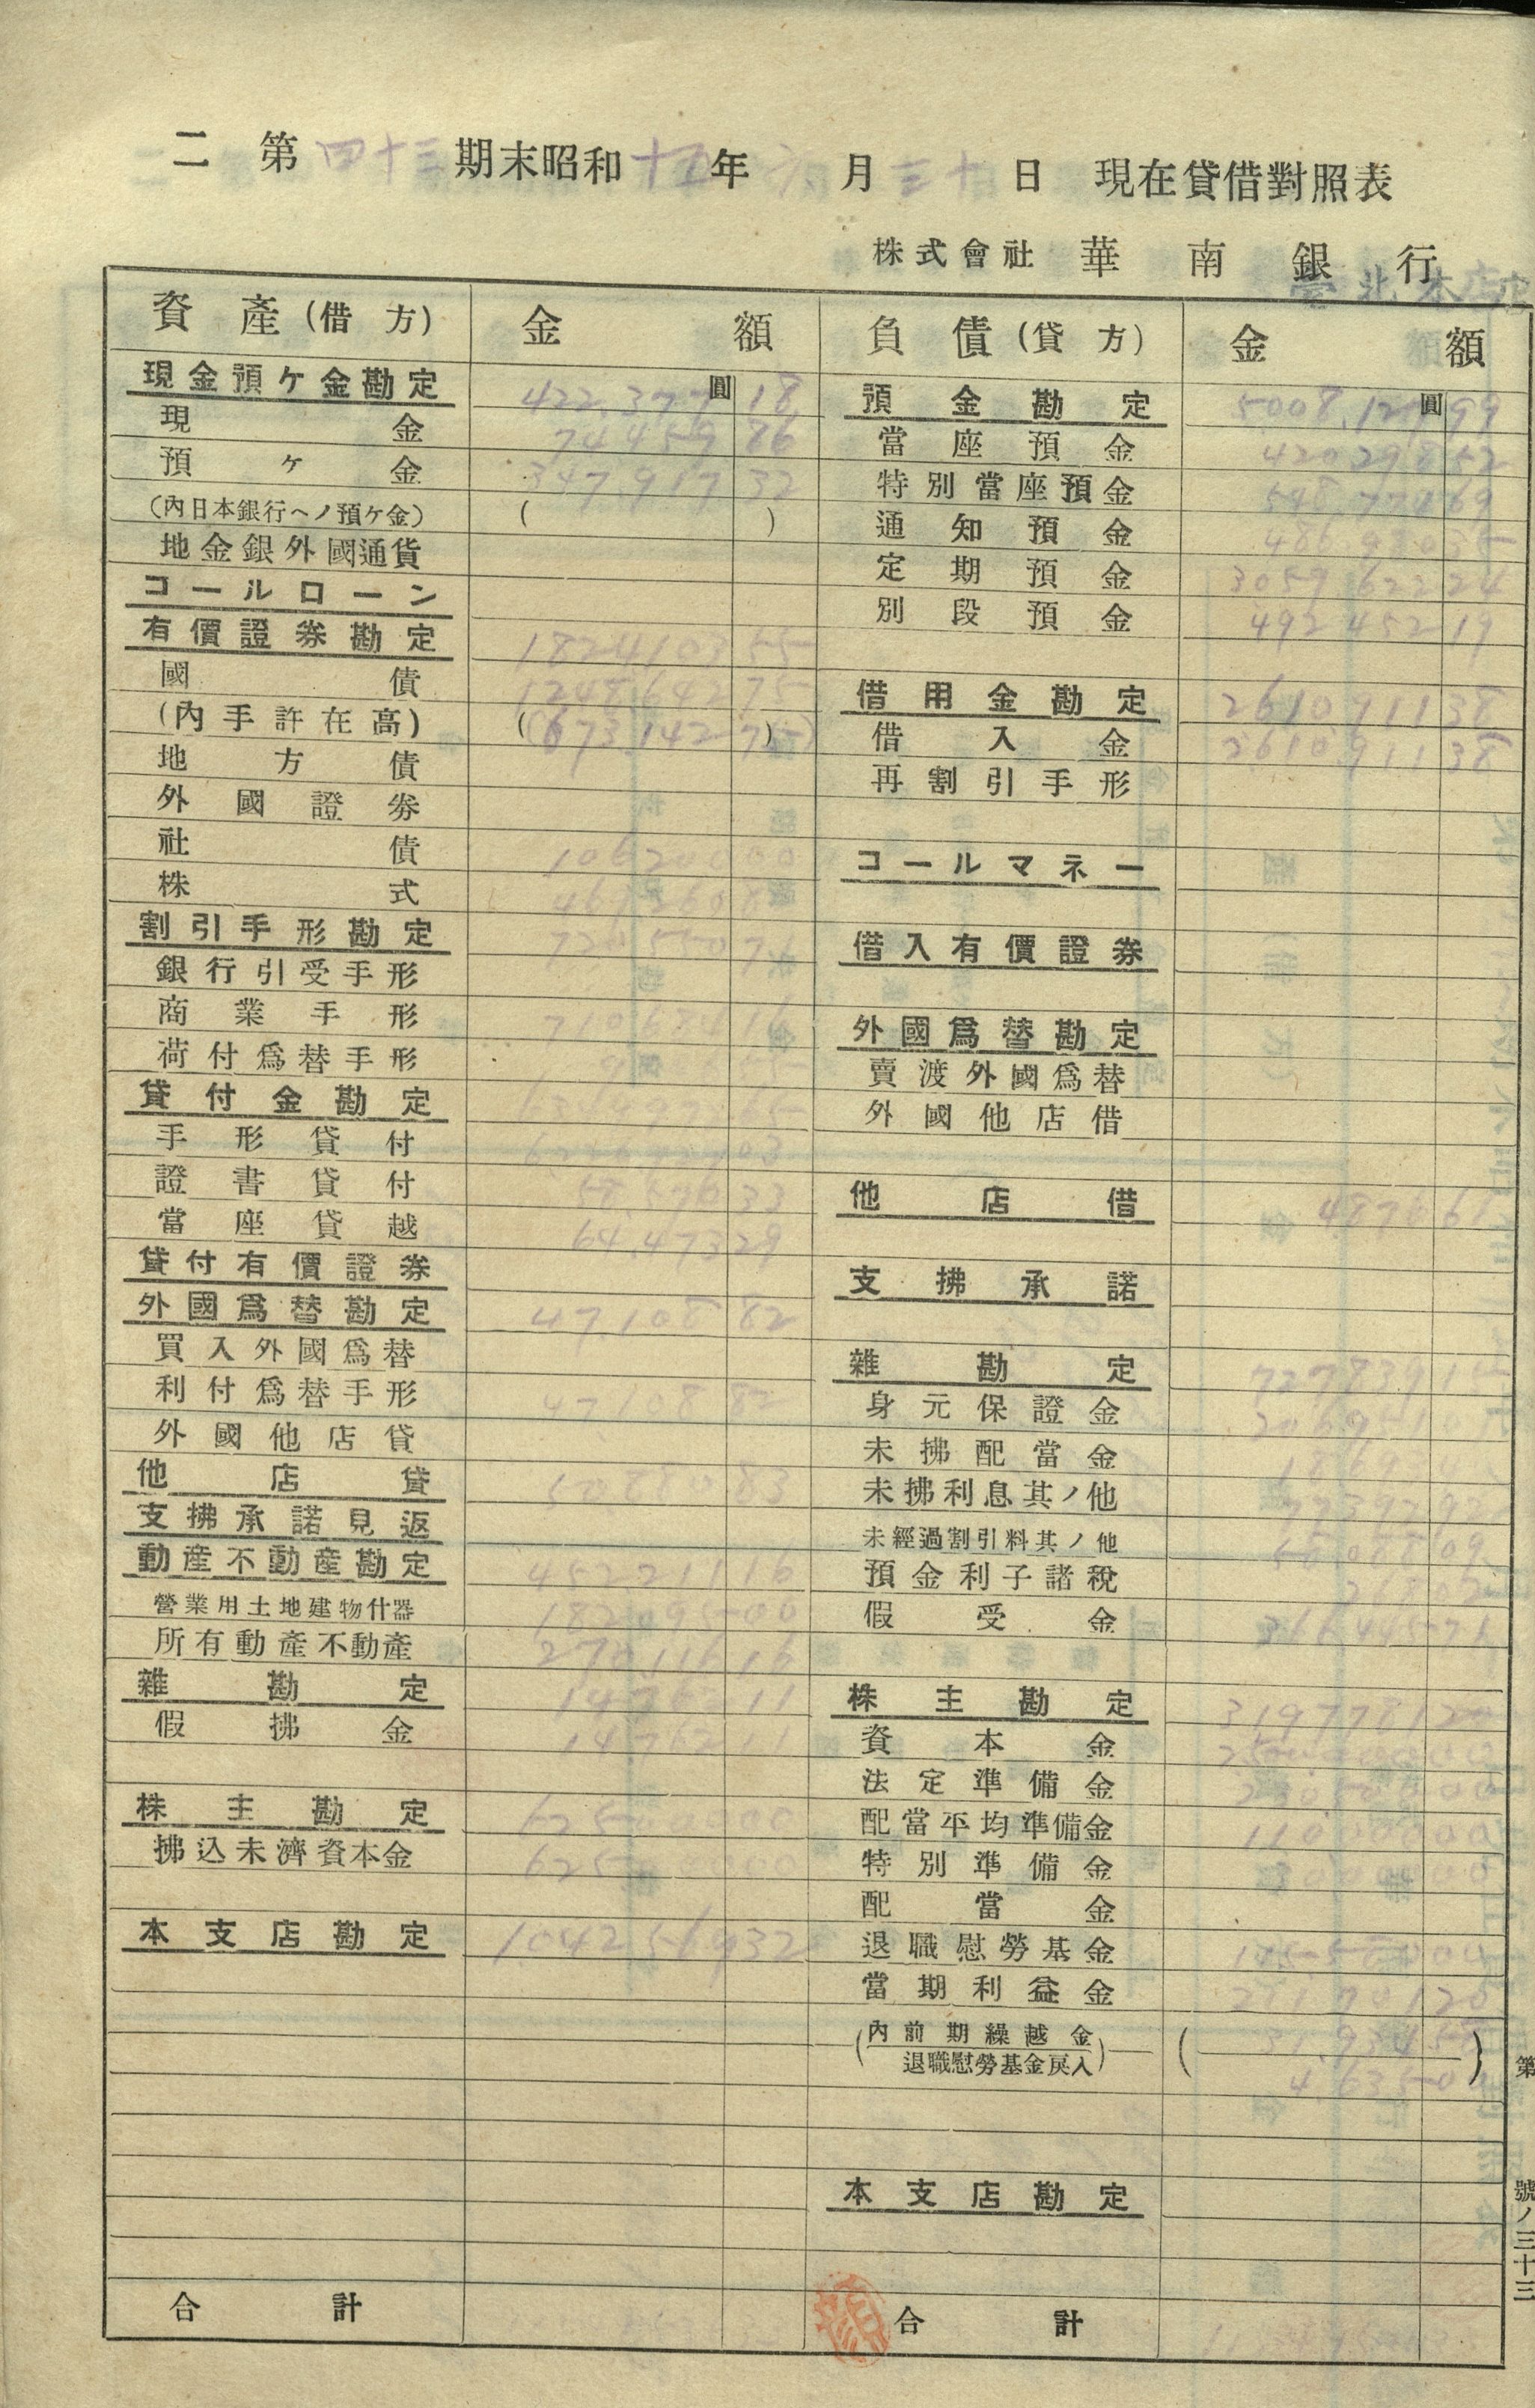 二 第四十三期末昭和十五年六月三十日 現在貸借對照表
株式會社 華南銀行
臺北本店
資產(借方) 金額 負債(貸方) 金額
現金預ケ金勘定 422,377圓18
現金 74,459 86
預ケ金 347,917 32
(內日本銀行ヘノ預ケ金) ( )
地金銀外國通貨
コールローン
有價證券勘定 1824103 55
國債 1248642 75
(內手許在高) (673,142 75)
地方債
外國證券
社債 106200 00
株式 469260 80
割引手形勘定
銀行引受手形
商業手形
荷付爲替手形
貸付金勘定
手形貸付
證書貸付 58,576 33
當座貸越 64,473 29
貸付有價證券
外國爲替勘定 47,108 82
買入外國爲替
利付爲替手形 47108 82
外國他店貸
他店貸
支拂承諾見返
動産不動産勘定 452211 16
營業用土地建物什器 182,095 00
所有動產不動產 270,116 16
雜勘定 14762 11
假拂金 14,762 11
株主勘定 625000 00
拂込未濟資本金 625000 00
本支店勘定 1,042,569 32
合計
預金勘定 5008,127圓99
當座預金 420298 52
特別當座預金 548,774 69
通知預金 486,980 35
定期預金 3059,622 24
別段預金 492452 19
借用金勘定 2610911 38
借入金 2,610,911 38
再割引手形
コールマネー
借入有價證券
外國爲替勘定
賣渡外國爲替
外國他店借
他店借 4876 61
支拂承諾
雜勘定 727839 15
身元保證金
未拂配當金
未拂利息其ノ他 77392 92
未經過割引料其ノ他 58,088 09
預金利子諸稅 268 02
假受金 366,445 71
株主勘定 3197781 20
資本金 2500,000 00
法定準備金
配當平均準備金 110,000 00
特別準備金
配當金
退職慰勞基金
當期利益金 221,701 20
(內前期繰越金 31,934 58
退職慰勞基金戾入)
本支店勘定
合計
第
號ノ三十三